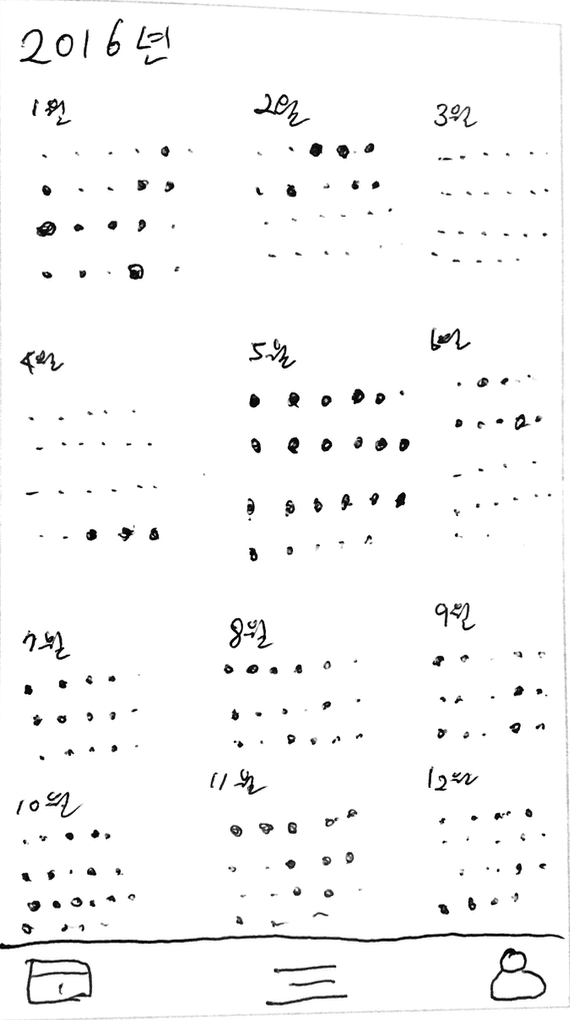 2016년
1월 2월 3월
4월 5월 6월
7월 8월 9월
10월 11월 12월